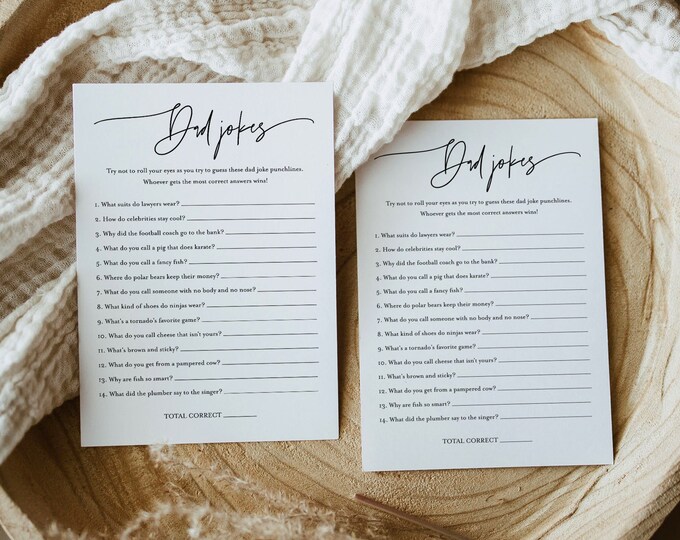 Dad jokes
Try not to roll your eyes as you try to guess these dad joke punchlines.
Whoever gets the most correct answers wins!
1. What suits do lawyers wear?
2. How do celebrities stay cool?
3. Why did the football coach go to the bank?
4. What do you call a pig that does karate?
5. What do you call a fancy fish?
6. Where do polar bears keep their money?
7. What do you call someone with no body and no nose?
8. What kind of shoes do ninjas wear?
9. What's a tornado's favorite game?
10. What do you call cheese that isn't yours?
11. What's brown and sticky?
12. What do you get from a pampered cow?
13. Why are fish so smart?
14. What did the plumber say to the singer?
TOTAL CORRECT
Dad jokes
Try not to roll your eyes as you try to guess these dad joke punchlines.
Whoever gets the most correct answers wins!
1. What suits do lawyers wear?
2. How do celebrities stay cool?
3. Why did the football coach go to the bank?
4. What do you call a pig that does karate?
5. What do you call a fancy fish?
6. Where do polar bears keep their money?
7. What do you call someone with no body and no nose?
8. What kind of shoes do ninjas wear?
9. What's a tornado's favorite game?
10. What do you call cheese that isn't yours?
11. What's brown and sticky?
12. What do you get from a pampered cow?
13. Why are fish so smart?
14. What did the plumber say to the singer?
TOTAL CORRECT